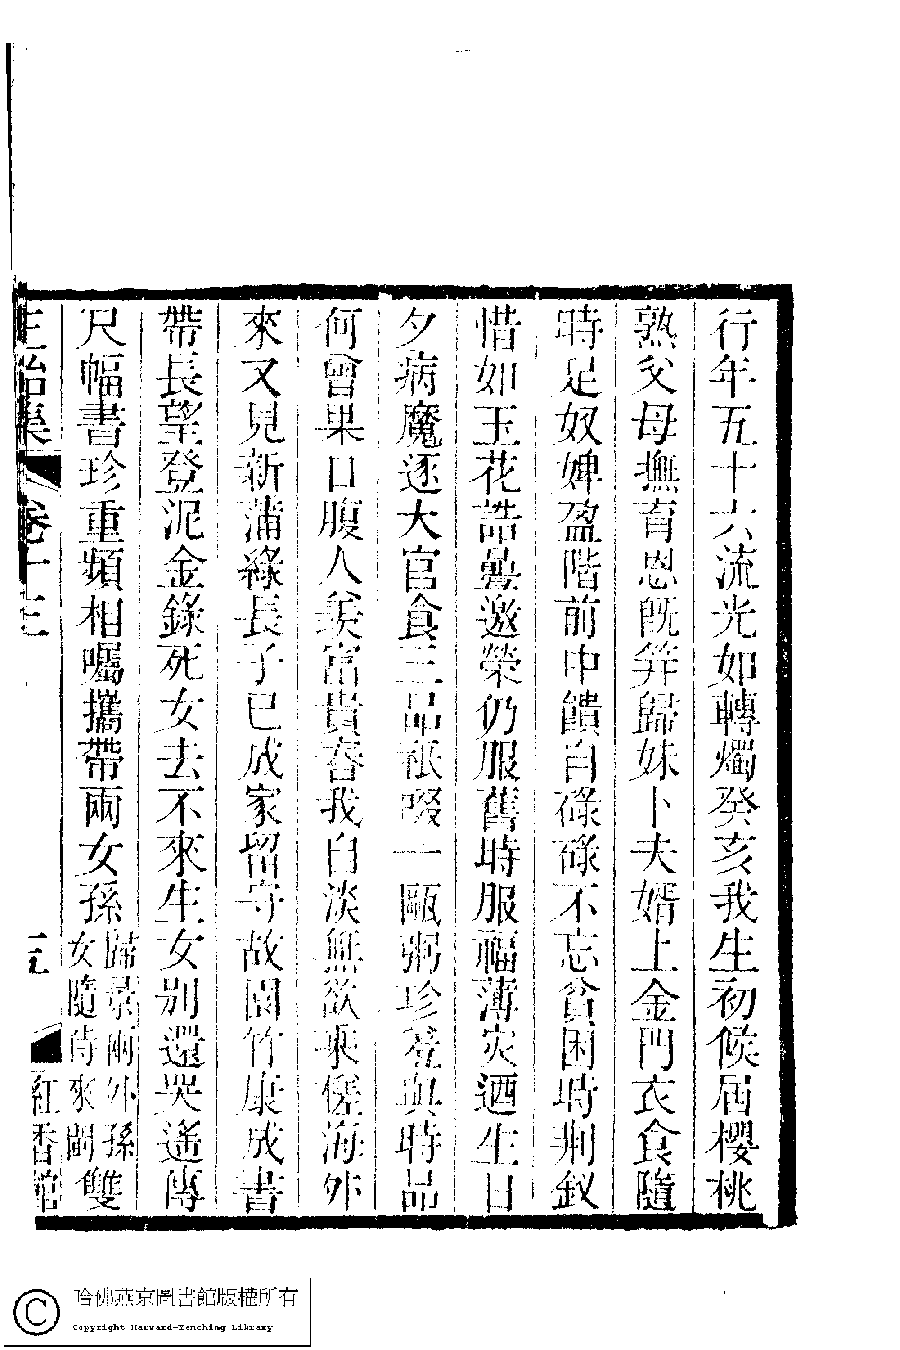 行年五十六流光如轉燭癸亥我生初候屆櫻桃
熟父母撫育恩旣筓歸妹卜夫婿上金門衣食隨
時足奴婢盈階前中饋自碌碌不忘貧困時荆釵
惜如玉花誥疊邀榮仍服舊時服福薄灾迺生日
夕病魔逐大官食三品祇啜一甌粥珍羞與時品
何曾果口腹人羡富貴春我自淡無欲乘槎海外
來又見新蒲綠長子已成家留守故園竹康成書
帶長望登泥金錄死女去不來生女別還哭遙傳
尺幅書珍重頻相囑攜帶兩女孫
歸景兩外孫雙
女隨侍來嗣
正始集
卷十三
三五
紅香館
哈佛燕京圖書館版權所有
Copyright Harvard-Yenching Library